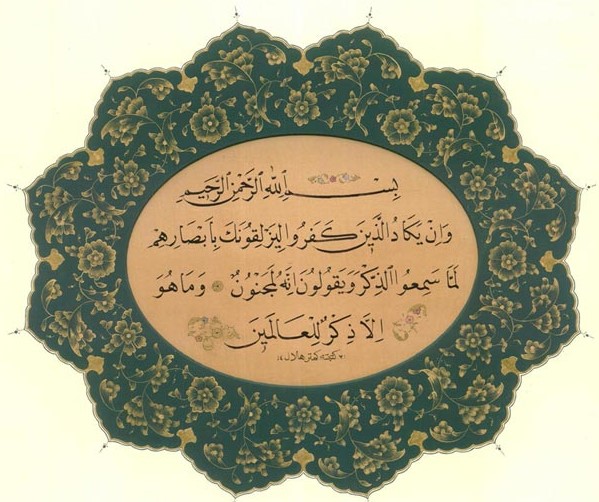 بِسْمِ اللّٰهِ الرَّحْمٰنِ الرَّحِيمِ
وَاِنْ يَكَادُ الَّذِينَ كَفَرُوا لَيُزْلِقُونَكَ بِاَبْصَارِهِمْ
لَمَّا سَمِعُوا الذِّكْرَ وَيَقُولُونَ اِنَّهُ لَمَجْنُونٌ وَمَا هُوَ
اِلَّا ذِكْرٌ لِلْعَالَمِينَ